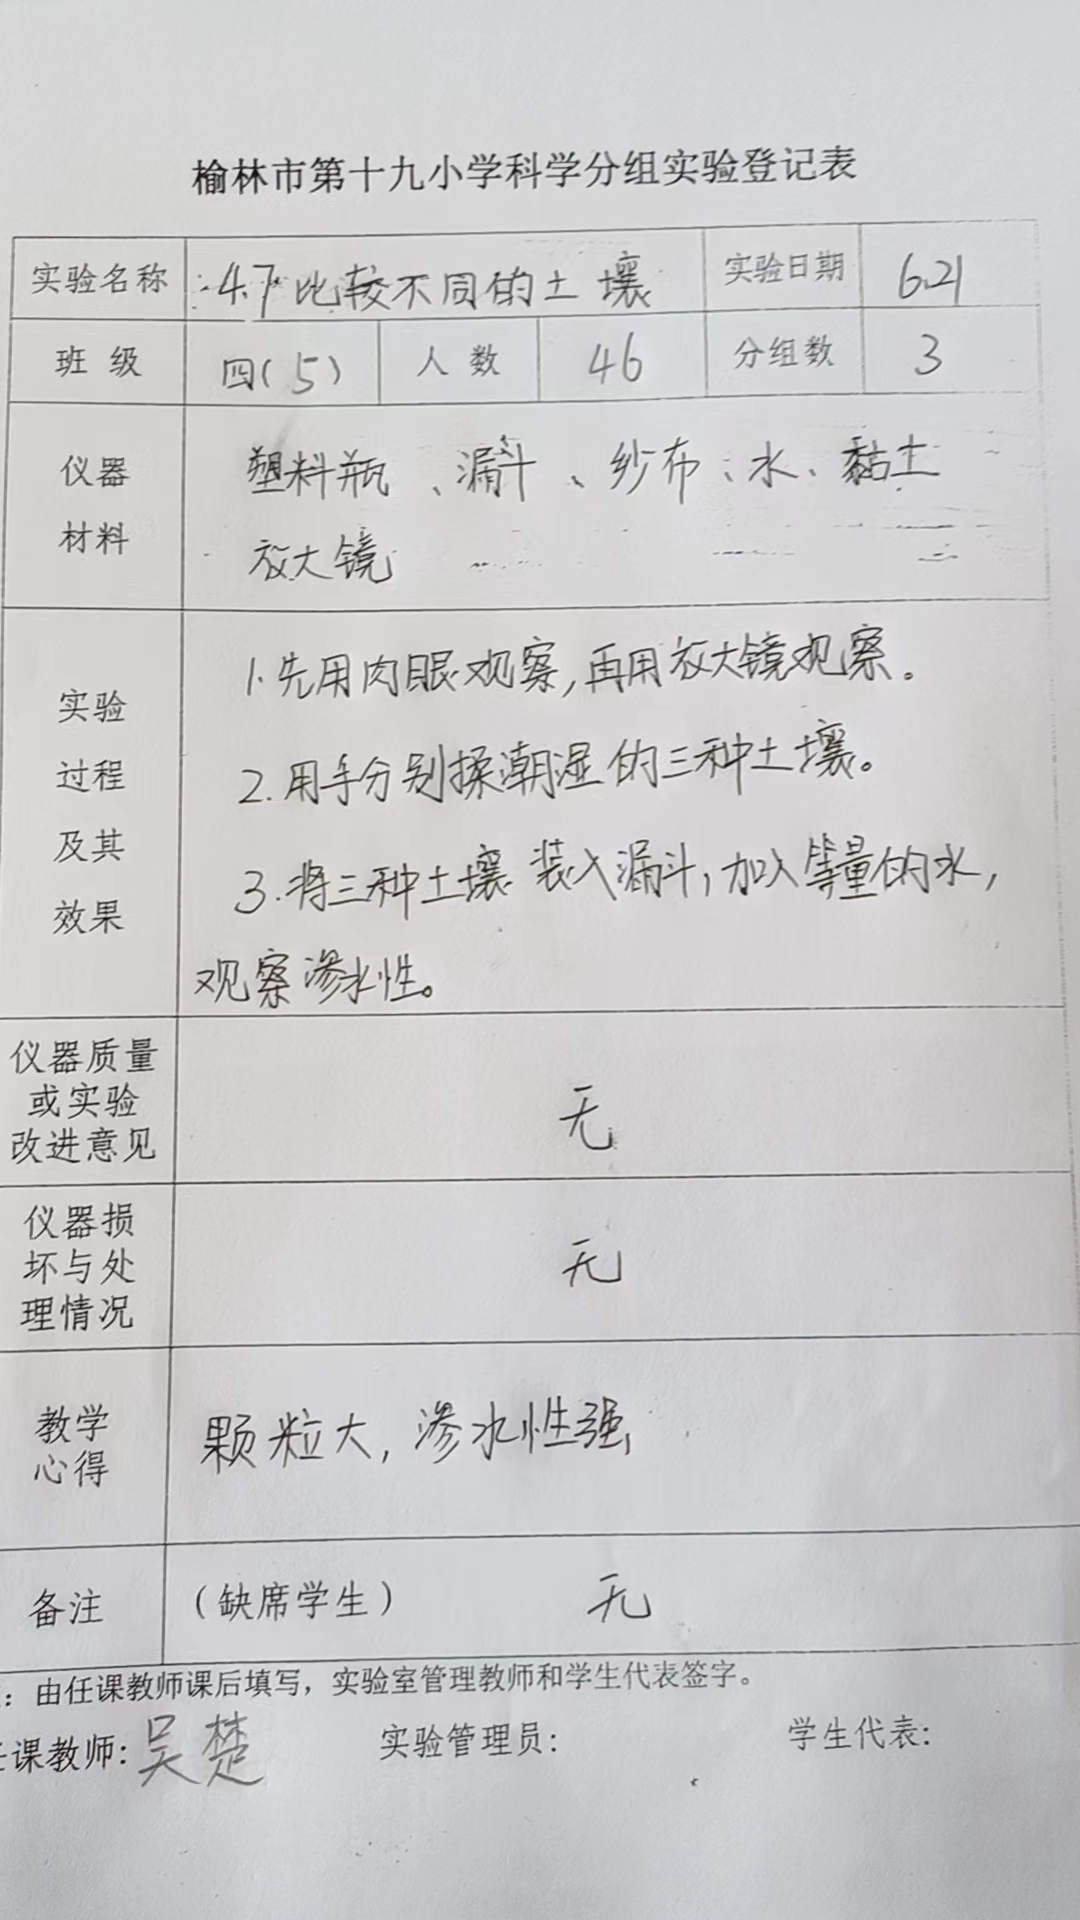 榆林市第十九小学科学分组实验登记表
实验名称 4.7比较不同的土壤 实验日期 6.21
班 级 四(5) 人 数 46 分组数 3
仪器 塑料瓶、漏斗、纱布、水、黏土
材料 放大镜
实验 1.先用肉眼观察,再用放大镜观察。
过程 2.用手分别揉潮湿的三种土壤。
及其 3.将三种土壤装入漏斗,加入等量的水,
效果 观察渗水性。
仪器质量
或实验 无
改进意见
仪器损
坏与处 无
理情况
教学 颗粒大,渗水性强,
心得
备注 (缺席学生) 无
:由任课教师课后填写,实验室管理教师和学生代表签字。
任课教师:吴楚 实验管理员: 学生代表: